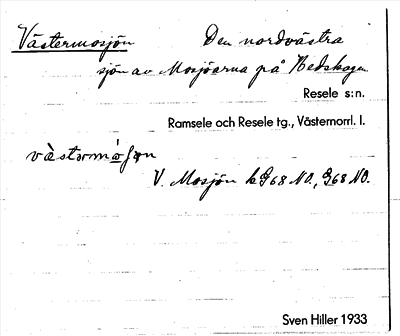 Västermosjön Den nordvästra
sjön av Mosjöarna på Nedskogen
Resele s:n.
Ramsele och Resele tg., Västernorrl. l.
V. Mosjön G68 NO., G68 NO.
Sven Hiller 1933